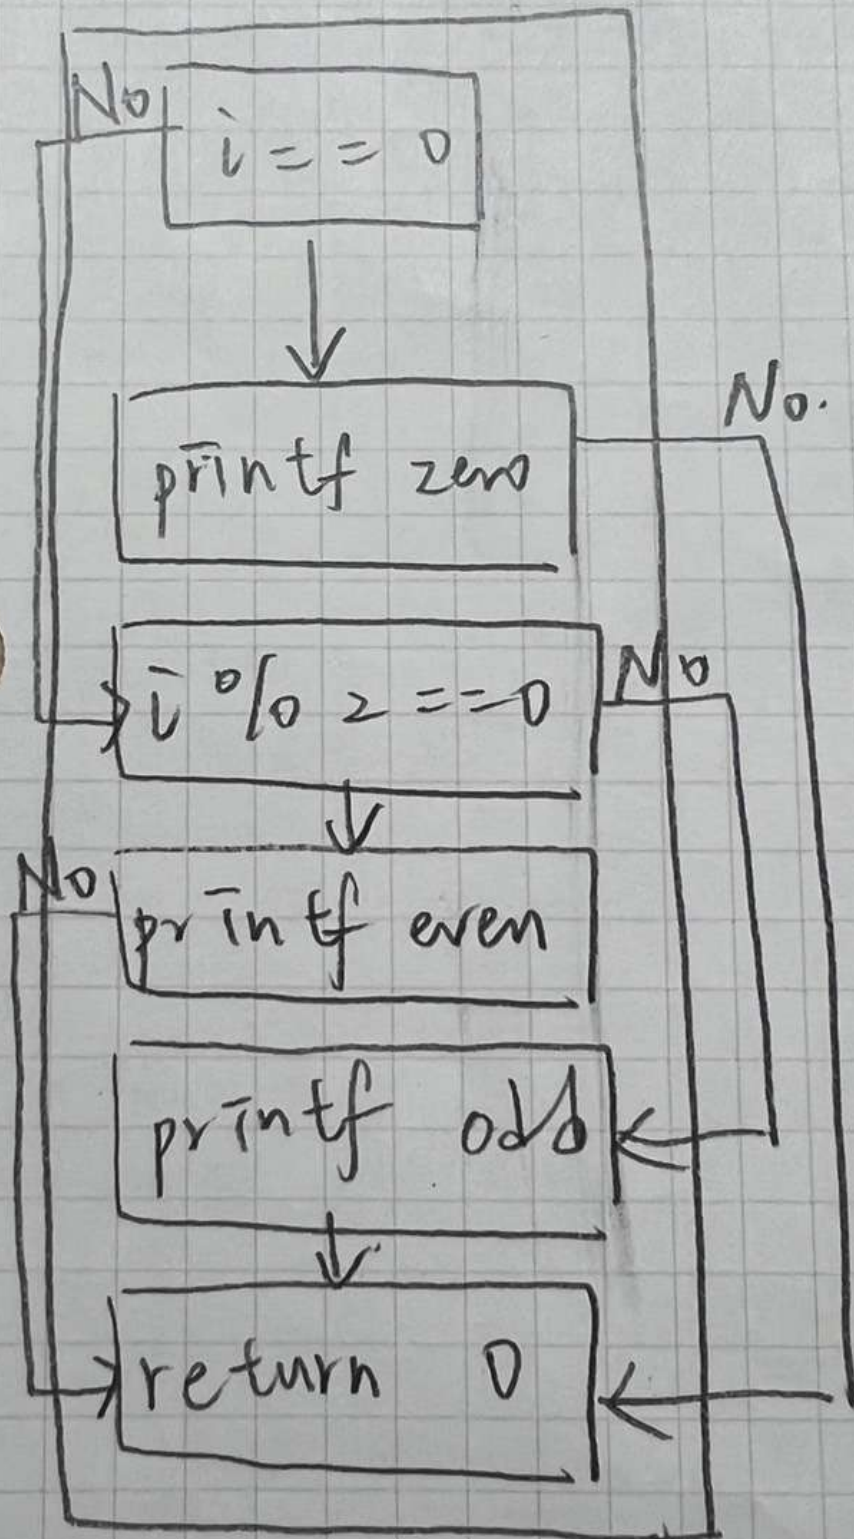 No
i == 0
No.
printf zero
i % 2 == 0
No
No
printf even
printf odd
return 0